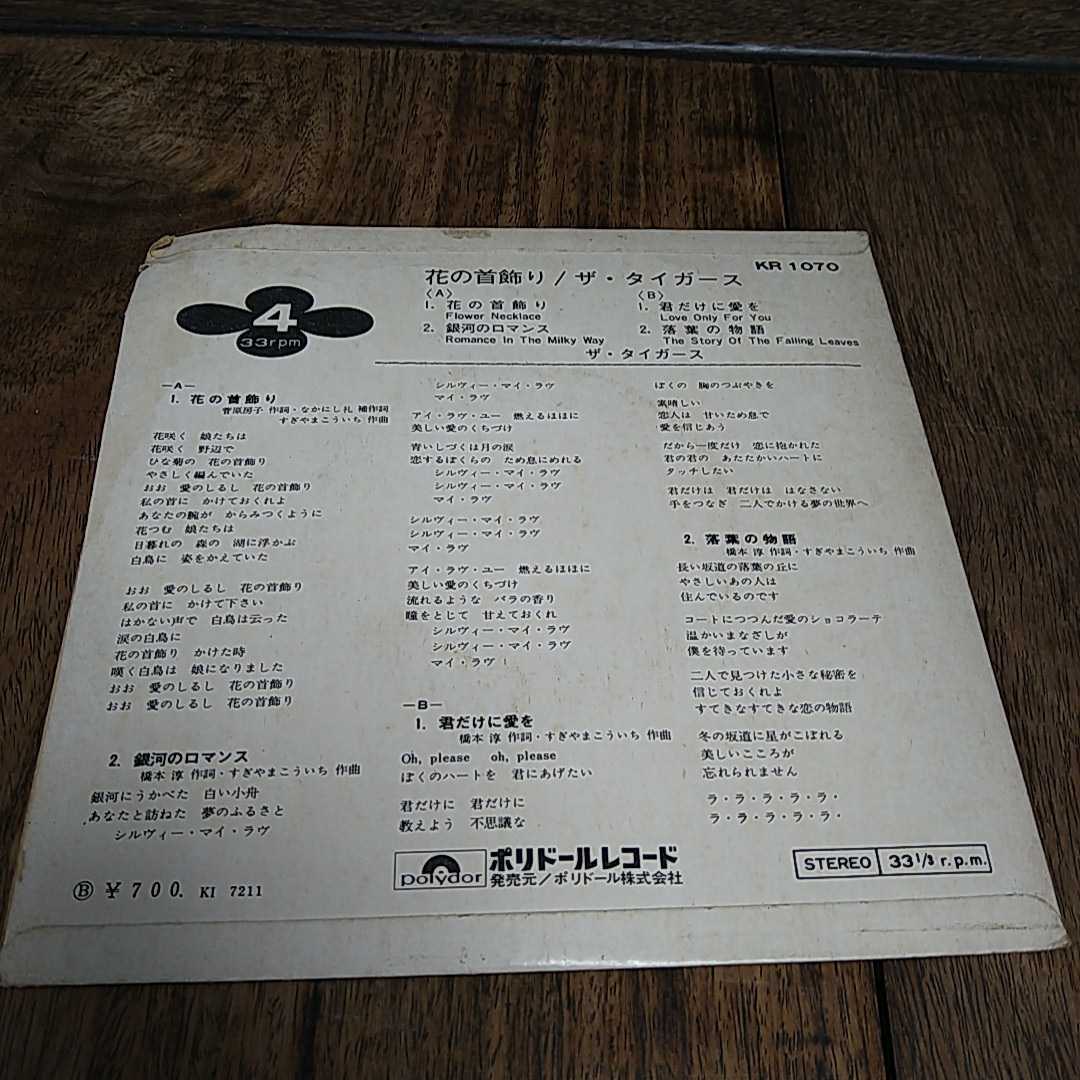 KR 1070
花の首飾り / ザ・タイガース
〈A〉
1. 花の首飾り
Flower Necklace
2. 銀河のロマンス
Romance In The Milky Way
〈B〉
1. 君だけに愛を
Love Only For You
2. 落葉の物語
The Story Of The Falling Leaves
ザ・タイガース
4
33rpm
—A—
1. 花の首飾り
菅原房子 作詞・なかにし礼 補作詞
すぎやまこういち 作曲
花咲く 娘たちは
花咲く 野辺で
ひな菊の 花の首飾り
やさしく編んでいた
おお 愛のしるし 花の首飾り
私の首に かけておくれよ
あなたの腕が からみつくように
花つむ 娘たちは
日暮れの 森の 湖に浮かぶ
白鳥に 姿をかえていた
おお 愛のしるし 花の首飾り
私の首に かけて下さい
はかない声で 白鳥は云った
涙の白鳥に
花の首飾り かけた時
嘆く白鳥は 娘になりました
おお 愛のしるし 花の首飾り
おお 愛のしるし 花の首飾り
2. 銀河のロマンス
橋本 淳 作詞・すぎやまこういち 作曲
銀河にうかべた 白い小舟
あなたと訪ねた 夢のふるさと
シルヴィー・マイ・ラヴ
シルヴィー・マイ・ラヴ
マイ・ラヴ
アイ・ラヴ・ユー 燃えるほほに
美しい愛のくちづけ
青いしづくは月の涙
恋するぼくらの ため息にめれる
シルヴィー・マイ・ラヴ
シルヴィー・マイ・ラヴ
マイ・ラヴ
シルヴィー・マイ・ラヴ
シルヴィー・マイ・ラヴ
マイ・ラヴ
アイ・ラヴ・ユー 燃えるほほに
美しい愛のくちづけ
流れるような バラの香り
瞳をとじて 甘えておくれ
シルヴィー・マイ・ラヴ
シルヴィー・マイ・ラヴ
マイ・ラヴ
—B—
1. 君だけに愛を
橋本 淳 作詞・すぎやまこういち 作曲
Oh, please oh, please
ぼくのハートを 君にあげたい
君だけに 君だけに
教えよう 不思議な
ぼくの 胸のつぶやきを
素晴しい
恋人は 甘いため息で
愛を信じあう
だから一度だけ 恋に抱かれた
君の君の あたたかいハートに
タッチしたい
君だけは 君だけは はなさない
手をつなぎ 二人でかける夢の世界へ
2. 落葉の物語
橋本 淳 作詞・すぎやまこういち 作曲
長い坂道の落葉の丘に
やさしいあの人は
住んでいるのです
コートにつつんだ愛のショコラーテ
温かいまなざしが
僕を待っています
二人で見つけた小さな秘密を
信じておくれよ
すてきなすてきな恋の物語
冬の坂道に星がこぼれる
美しいこころが
忘れられません
ラ・ラ・ラ・ラ・ラ・
ラ・ラ・ラ・ラ・ラ・
Ⓑ ¥700. KI 7211
polydor
ポリドールレコード
発売元/ポリドール株式会社
STEREO 33 1/3 r.p.m.